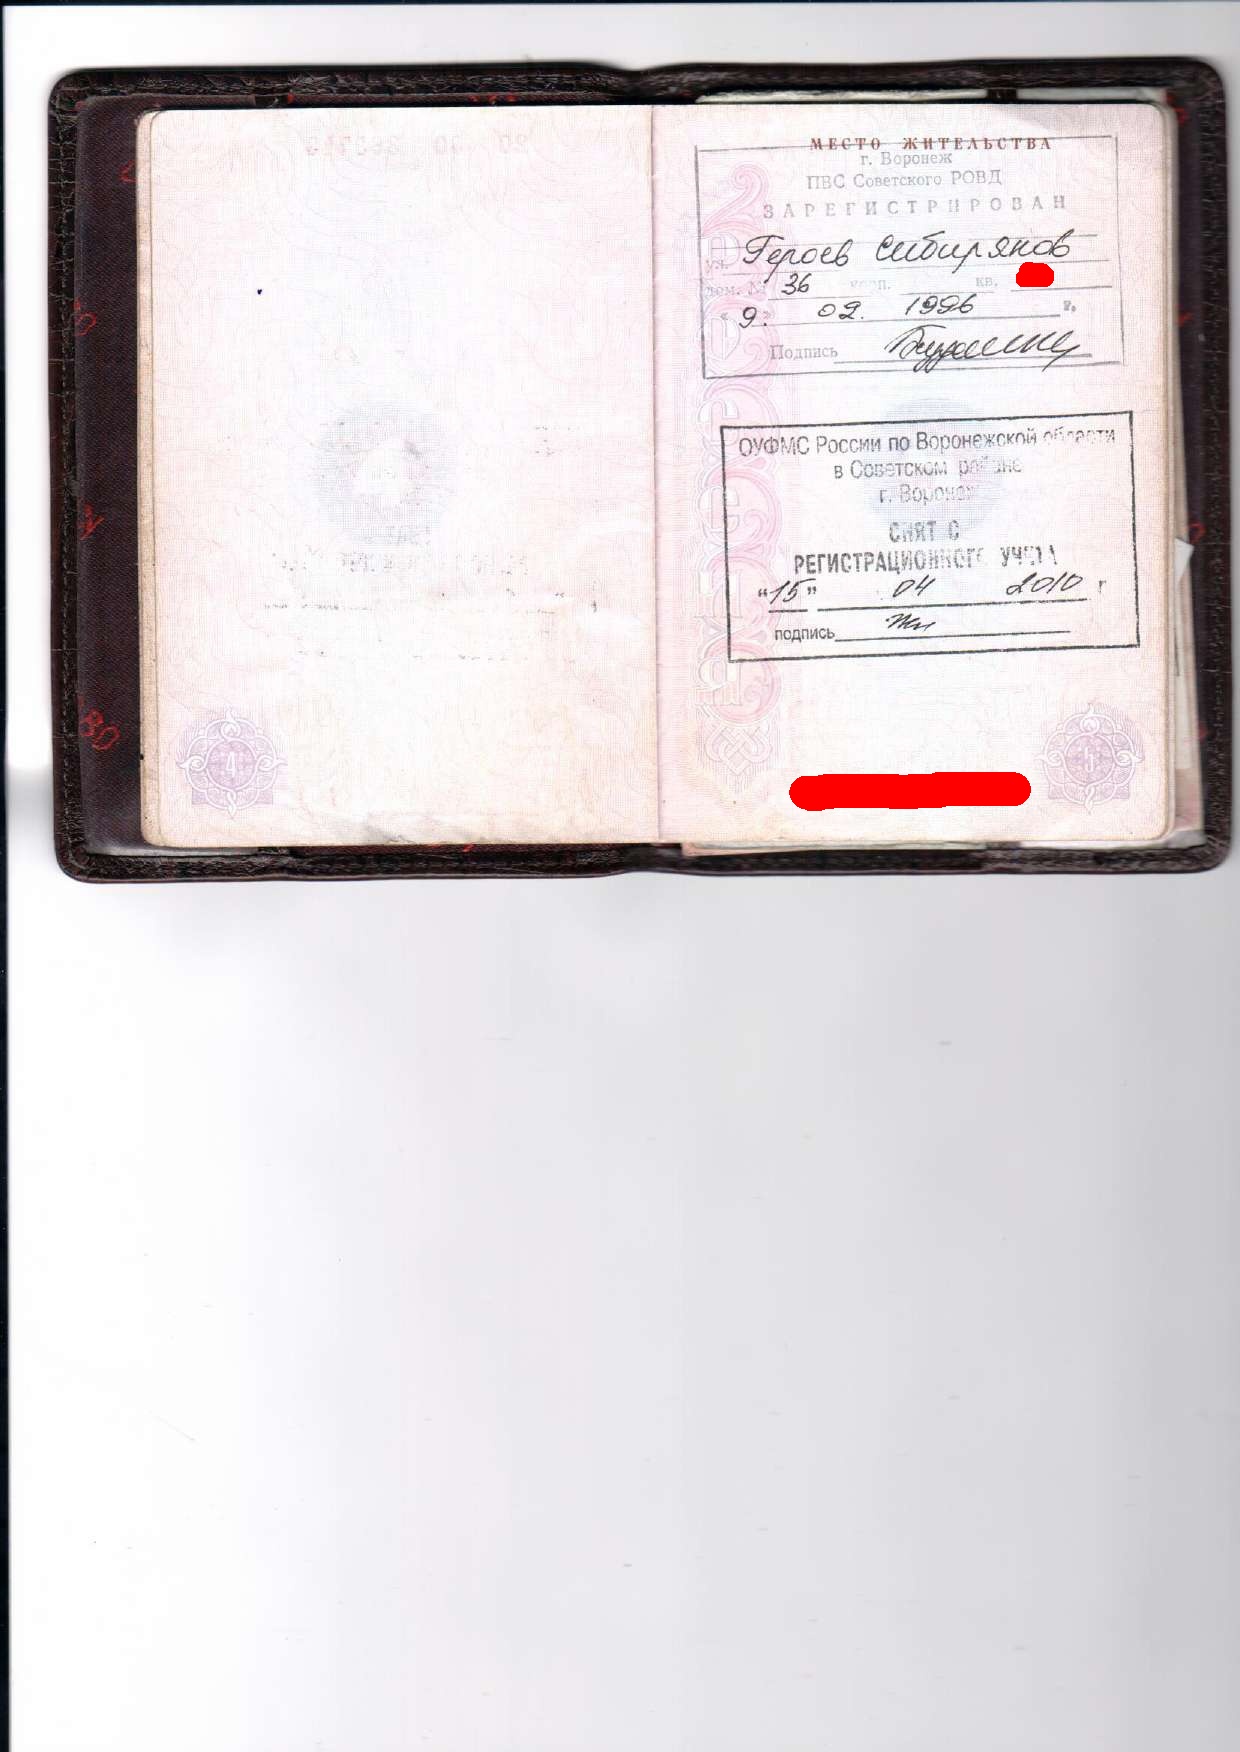 МЕСТО ЖИТЕЛЬСТВА
г. Воронеж
ПВС Советского РОВД
ЗАРЕГИСТРИРОВАН
ул. Героев Сибиряков
дом. № 36 корп. кв.
"9." 02. 1996 г.
Подпись
ОУФМС России по Воронежской области
в Советском районе
г. Воронеж
СНЯТ С
РЕГИСТРАЦИОННОГО УЧЕТА
"15" 04 2010 г
подпись
4
5